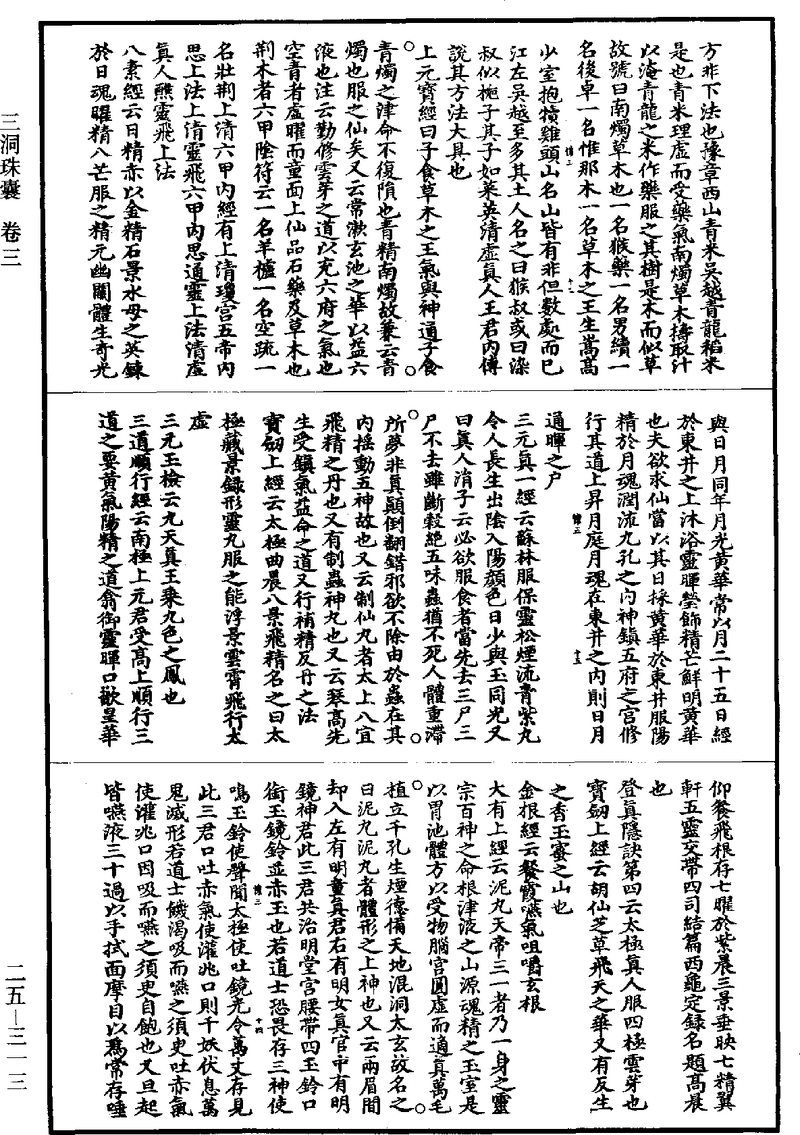 三洞珠囊 卷三
方非下法也豫章西山青米吳越青龍稻米
是也青米理虛而受藥氣南燭草木擣取汁
以淹青龍之米作藥服之其樹是木而似草
故號曰南燭草木也一名猴藥一名男續一
名後卓一名惟那木一名草木之王生嵩高
少室抱犢雞頭山名山皆有非但數處而已
江左吳越至多其土人名之曰猴叔或曰染
叔似梔子其子如茱萸清虛真人王君內傳
說其方法大具也
上元寶經曰子食草木之王氣與神通子食
青燭之津命不復隕也青精南燭故兼云青
燭也服之仙矣又云常漱玄池之華以益六
液也注云勤修雲芽之道以充六府之氣也
空青者虛曜而童面上仙品石藥及草木也
荆木者六甲陰符云一名羊櫨一名空疏一
名壯荆上清六甲內經有上清瓊宮五帝內
思上法上清靈飛六甲內思通靈上法清虛
真人熊靈飛上法
八素經云日精赤以金精石景水母之英鍊
於日魂曜精八芒服之精元幽闌體生奇光
與日月同年月光黃華常以月二十五日經
於東井之上沐浴靈暉瑩飾精芒鮮明黃華
也夫欲求仙當以其日採黃華於東井服陽
精於月魂潤流九孔之內神鎮五府之宮修
行其道上昇月庭月魂在東井之內則日月
通暉之户
三元真一經云蘇林服保靈松煙流青紫丸
令人長生出陰入陽顏色日少與玉同光又
曰真人涓子云必欲服食者當先去三尸三
尸不去雖斷穀絕五味蟲猶不死人體重滯
所夢非真顛倒翻錯邪欲不除由於蟲在其
內摇動五神故也又云制仙丸者太上八宜
飛精之丹也又有制蟲神丸也又云琴高先
生受鎮氣益命之道又行補精反丹之法
寶劒上經云太極曲晨八景飛精名之曰太
極藏景錄形靈丸服之能浮景雲霄飛行太
虛
三元玉檢云九天真王乘九色之鳳也
三道順行經云南極上元君受高上順行三
道之要黃氣陽精之道翕御靈暉口歠皇華
仰餐飛根存七曜於紫晨三景垂映七精翼
軒五靈交帶四司結篇西龜定錄名題高晨
也
登真隱訣第四云太極真人服四極雲芽也
寶劒上經云胡仙芝草飛天之華又有反生
之香玉蜜之山也
金根經云餐霞嚥氣咀嚼玄根
大有上經云泥丸天帝三一者乃一身之靈
宗百神之命根津液之山源魂精之玉室是
以胃池體方以受物腦宮圓虛而適真萬毛
植立千孔生煙德備天地混洞太玄故名之
曰泥丸泥丸者體形之上神也又云兩眉間
却入左有明童真君右有明女真官中有明
鏡神君此三君共治明堂宮腰帶四玉鈴口
銜玉鏡鈴並赤玉也若道士恐畏存三神使
鳴玉鈴使聲聞太極使吐鏡光令萬丈存見
此三君口吐赤氣使灌兆口則千妖伏息萬
鬼滅形若道士饑渴吸而嚥之須臾吐赤氣
使灌兆口因吸而嚥之須臾自飽也又旦起
皆嚥液三十過以手拭面摩目以爲常存唾
二五—三一三